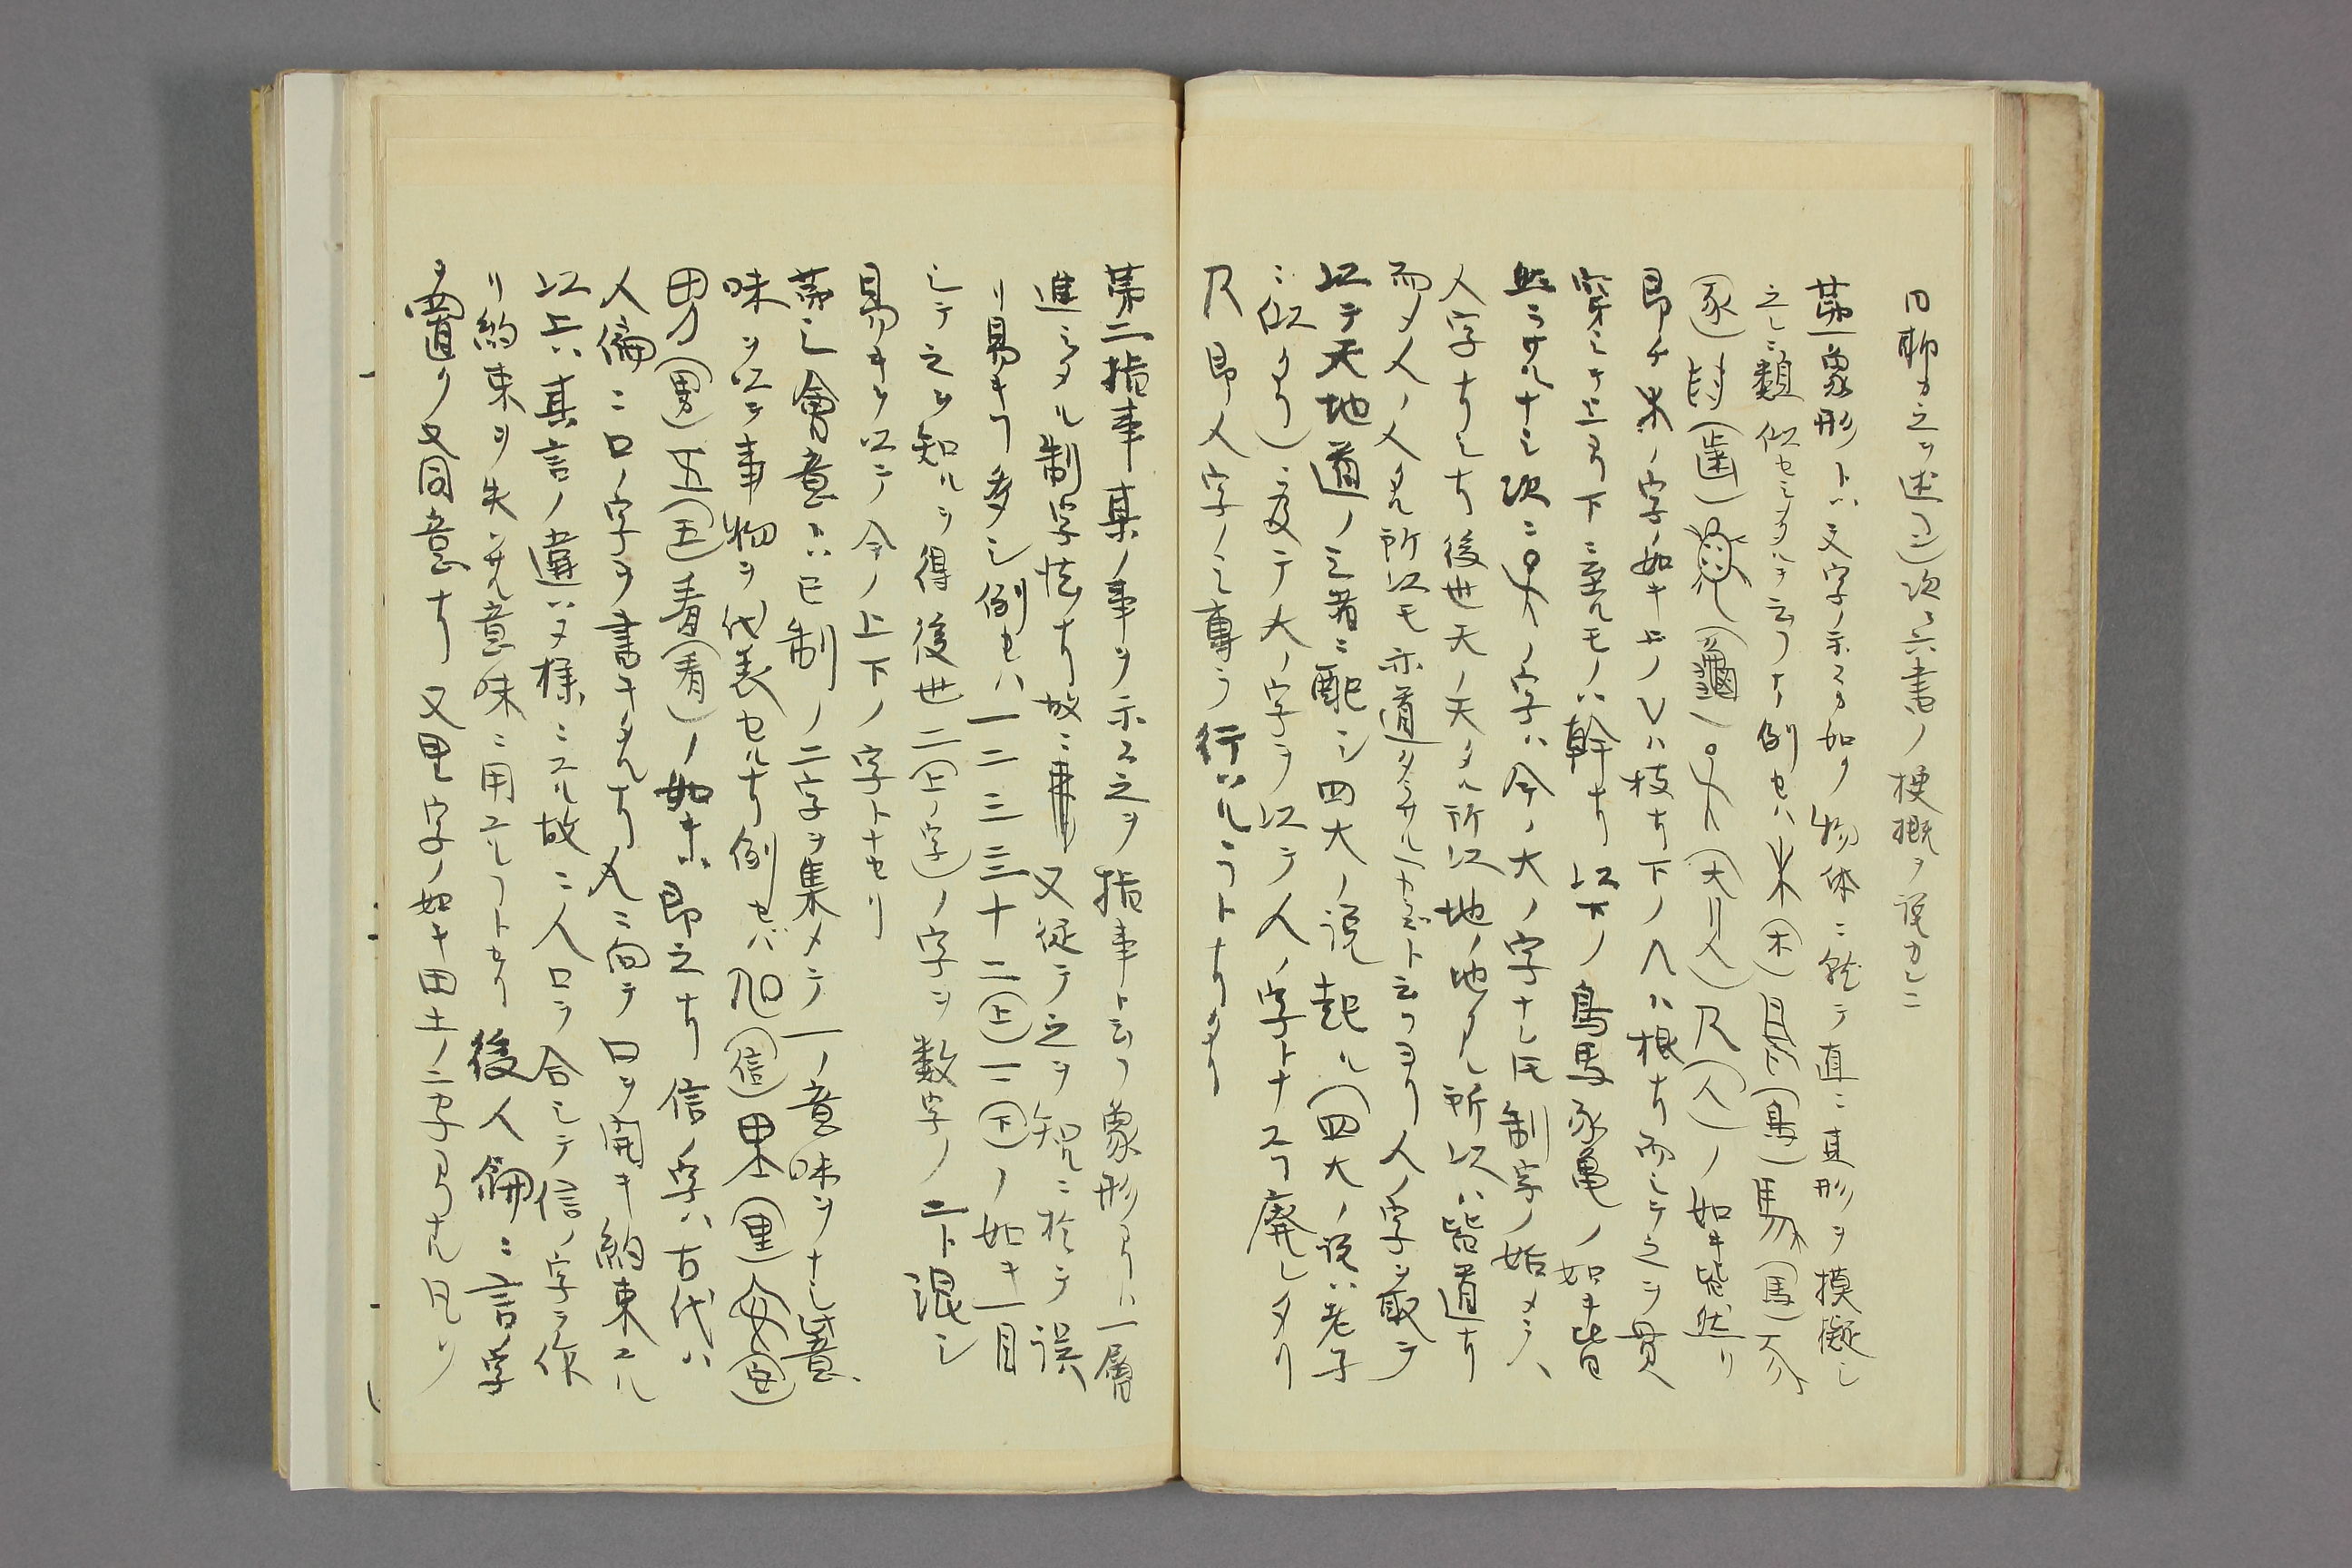 日聊カ之ヲ述フ)次ニ六書ノ梗概ヲ説カンニ
第一象形トハ文字ノ示スカ如ク物体ニ就テ直ニ其形ヲ摸擬シ
之レニ類似セシメタルヲ云フナリ例セハ(木)(鳥)(馬)
(豕)(歯)(龜)(大川人)(人)ノ如キ皆然リ
即チノ字ノ如キ上ノVハ枝ナリ下ノ八ハ根ナリ而シテ之ヲ貫
穿シテ上ヨリ下ニ至ルモノハ幹ナリ以下ノ鳥馬豕亀ノ如キ皆
然ラサルナシ次ニノ字ハ今ノ大ノ字ナレ𪜈制字ノ始メテハ
人字ナリシナリ後世天ノ天タル所以地ノ地タル所以ハ皆道ナリ
而メ人ノ人タル所以モ亦道タラサルヘカラズト云フヨリ人ノ字ヲ取テ
以テ天地道ノ三者ニ配シ四大ノ説起ル(四大ノ説ハ老子
ニ似タリ)変テ大ノ字ヲ以テ人ノ字トナスヿ廃レタリ
即人字ノミ専ラ行ハルヽヿトナリタリ
第二指事 某ノ事ヲ示ス之ヲ指事ト云フ象形ヨリハ一層
進ミタル制字法ナリ故ニ又従テ之ヲ知ルニ於テ誤
リ易キヿ多シ例セハ一二三三十二(上)二(下)ノ如キ一目
シテ之ヲ知ルヲ得後世二(上ノ字)ノ字ヲ数字ノ二ト混シ
易キヲ以テ今ノ上下ノ字トナセリ
第三會意ハ已制ノ二字ヲ集メテ一ノ意味ヲナシ其意
味ヲ以テ事物ヲ代表セルナリ例セバ(信)(里)(安)
男(男)(五)看(看)ノ如キハ即之ナリ信ノ字ハ古代ハ
人偏ニ口ノ字ヲ書キタルナリ人ニ向テ口ヲ開キ約束スル
以上ハ其言ノ違ハヌ様ニスル故ニ人口ヲ合シテ信ノ字ヲ作
リ約束ヲ失ハザル意味ニ用ユルヿトセリ後人偏ニ言ノ字
ヲ置ク又同意ナリ又里字ノ如キ田土ノ二字ヨリ